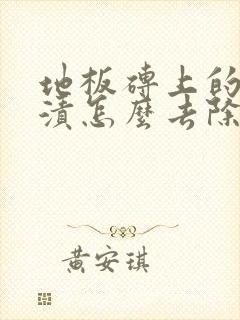 地板磚上的
漬怎麼去除
黃安琪